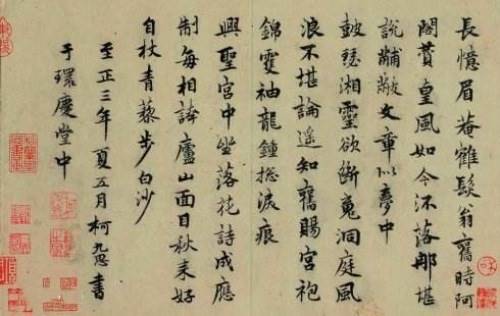 長憶眉菴鶴髮翁舊時阿
閣賛皇風如今流落那堪
說黼黻文章似夢中
鼓瑟湘靈欲斷魂洞庭風
浪不堪論遥知舊賜宮袍
錦雙袖龍鍾揔淚痕
興聖宮中坐落花詩成應
制每相誇廬山面目秋来好
自杖青藜步白沙
至正三年夏五月柯九思書
于環慶堂中